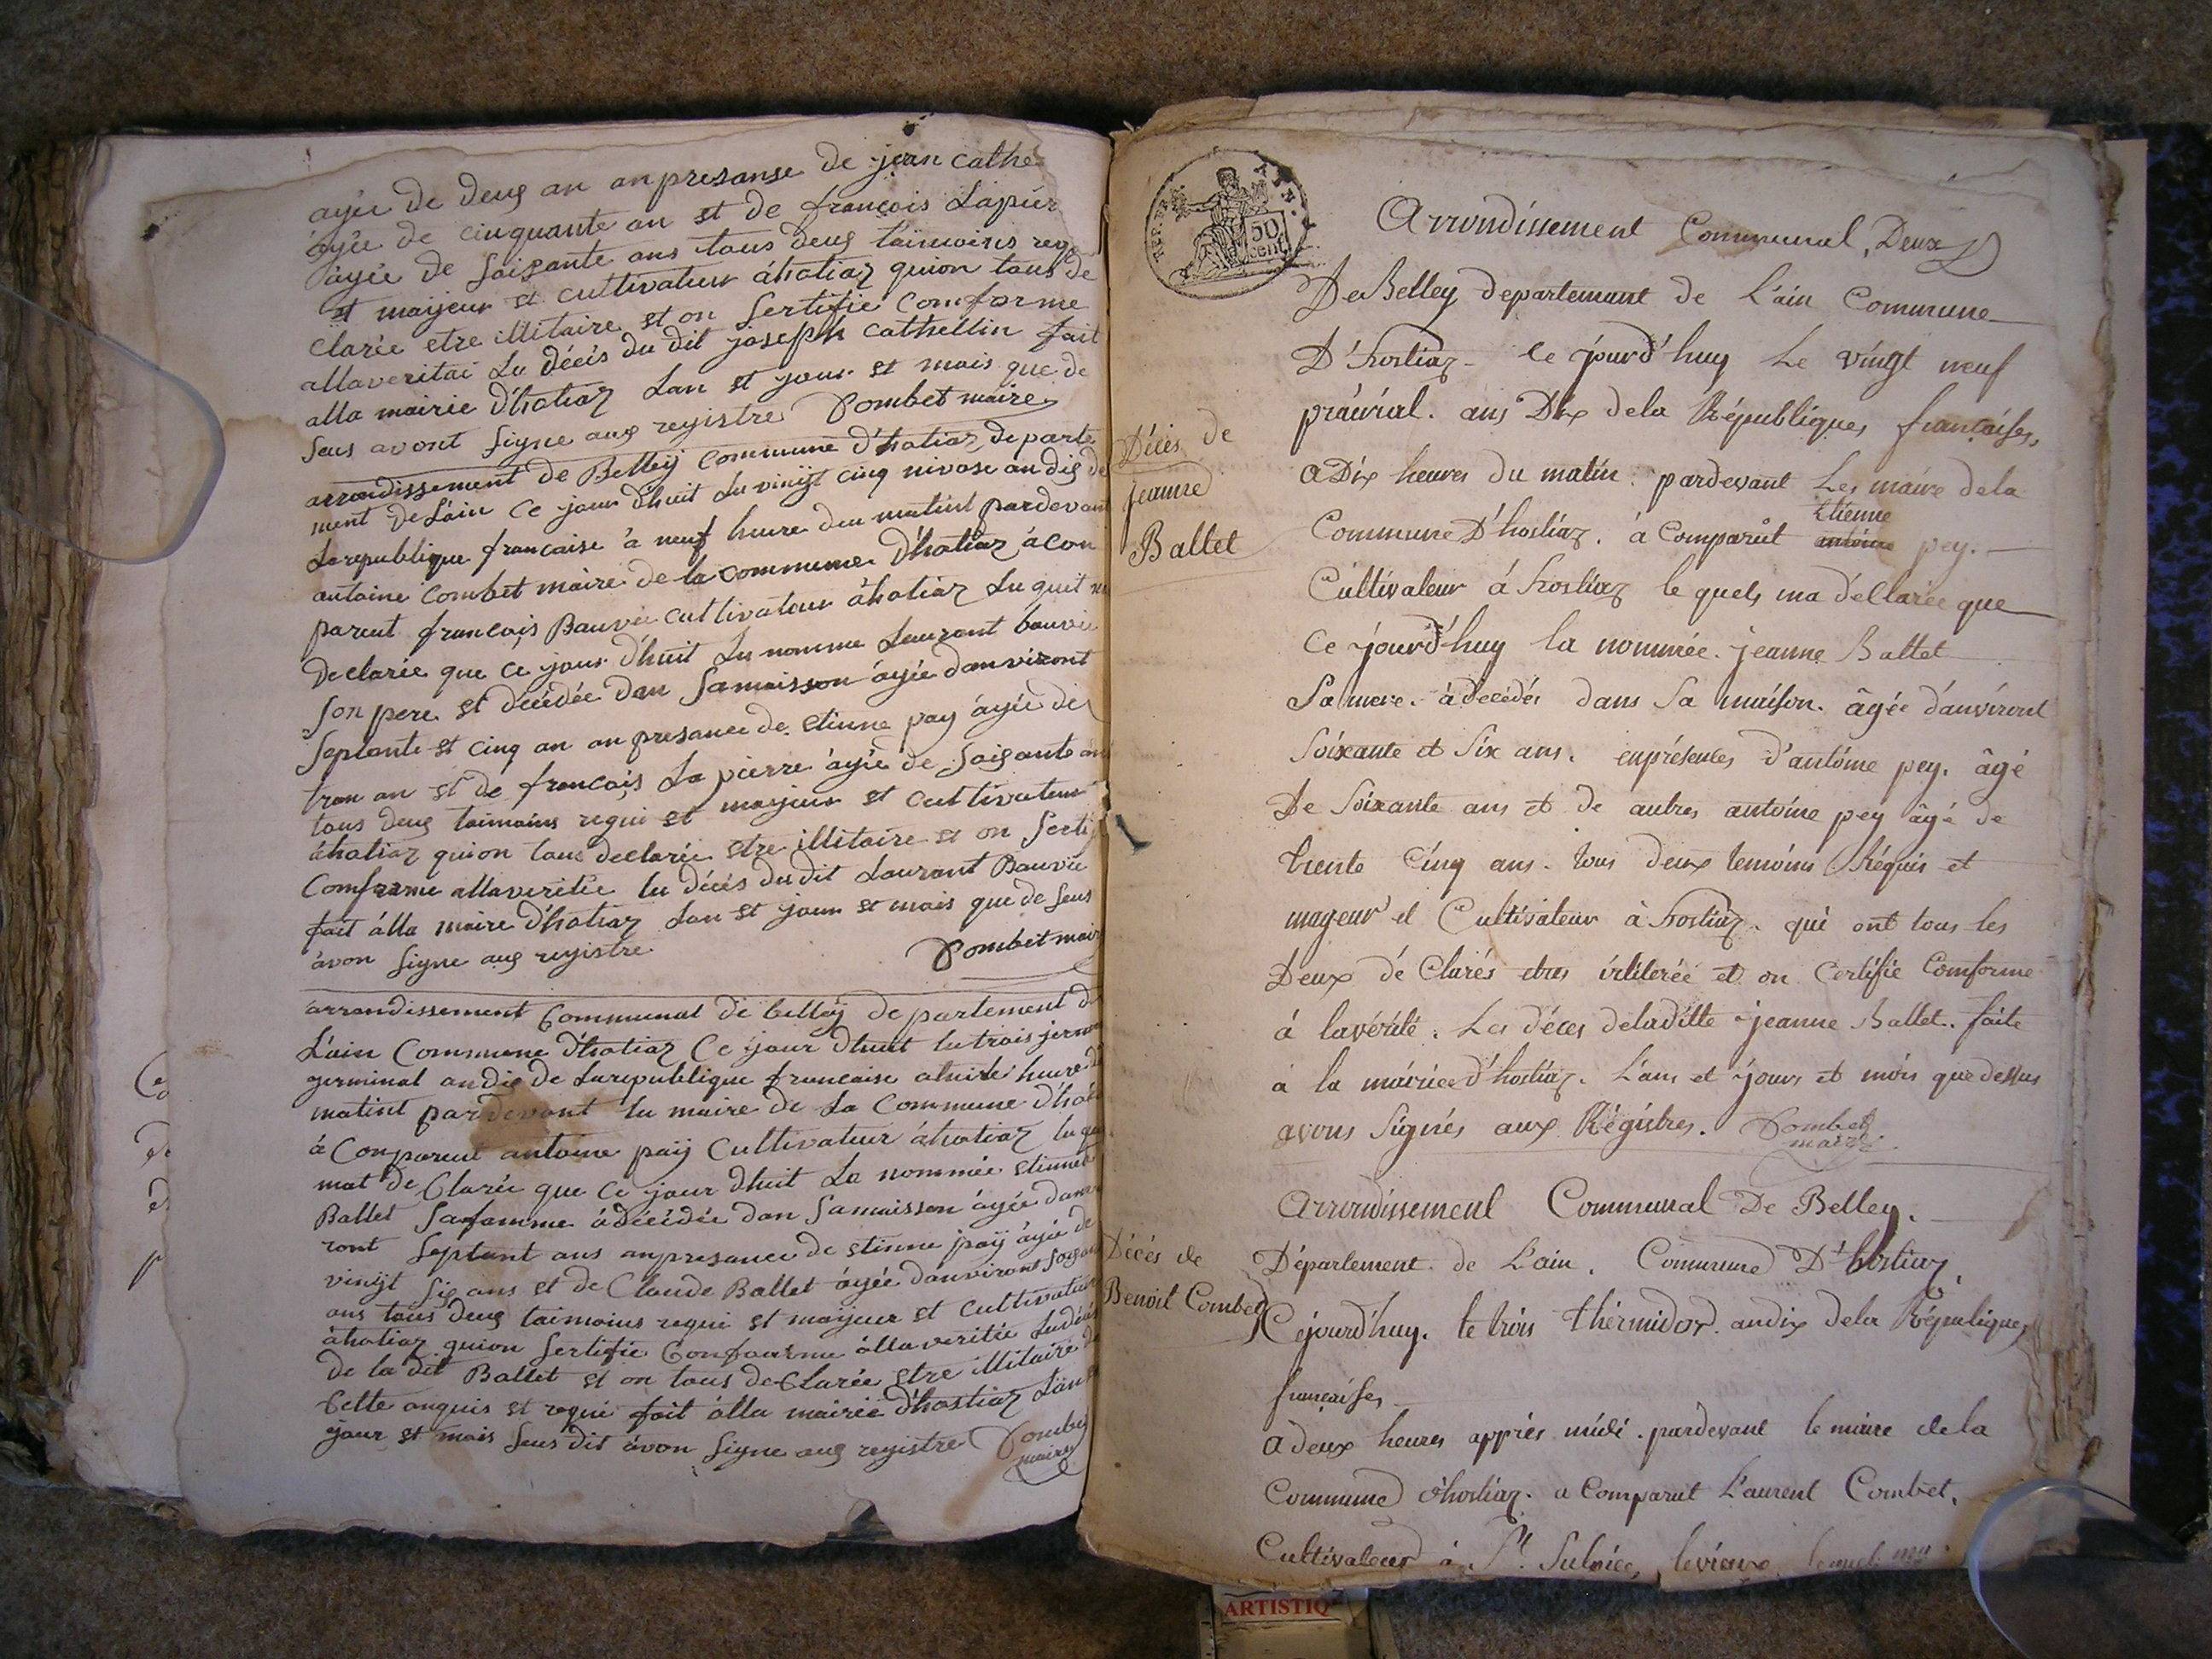 ayée de deux an anpresanse de jean cathe
ayée de cinquante an et de françois Lapier
ayée de soisante ans tous deux taimoins req
et maijeur et cultivateur áhotiaz quion tous de
clarée etre illitaire et on sertifié comforme
allaveritai Lu décès du dit joseph cathellin fait
alla mairie D'hotiaz Lan et jour et mois que de
sus avont signe aux registre Combet maire
arrondissement de Belleÿ commune d'hotiaz departe
ment de L'ain ce jour d'huit Lu vinijt cinq nivose an dis de
Larepublique francaise á neuf heure deu matint pardevant
antoine Combet maire de la commeme D'hotiaz ácon
parent francois Bauvée cultivateur áhotiaz Lu quit
declarée que ce jour d'huit Lu nomme Laurant bauvée
son pere et décédée dan samaisson áyée danviront
septante et cinq an an presance de etienne pay áyée de
tran an et de françois La pierre áyée de soisante an
tous deux taimoins requi et maijeur et cultivateur
áhotiaz quion tous declarée etre illitaire et on serti
comforme allaveritée lu décés du dit Laurant Bauvée
fait álla maire D'hotiaz Lan et jour et mois que de sus
ávon signe aux registre Combet maire
arrondissement Communal de belleÿ departement de
L'ain Commune D'hotiaz Ce jour d'huit lu trois jerm
germinal an dis de Larepublique francaise a huite heure de
matint pardevant lu maire de La Commune D'hot
á Conparent antoine paÿ Cultivateur áhotiaz lu que
mat de Clarée que ce jour d'huit La nommée etiennet
Ballet safamme ádécédée dan samaisson áyée danv
ront septant ans anpresance de etienne paÿ áyée de
vinijt sis ans et de Claude Ballet áyée danviront soisan
ans tous deux taimoins requi et maijeur et cultivateur
áhotiaz quion sertifie Comfourme állaveritée Ludécés
de la dit Ballet et on tous deClarée etre illitaire de
Cette anquis et requi fait álla mairie d'hostiaz Lan
jour et mois sus dit ávon signe aux registre Combet
maire
50
cent
Arrondissement Communal, Deux
De Belley departement de L'ain Commune
D'hostiaz - Ce jourd'huy Le vingt neuf
prairial. ans Dix dela République, françaises,
a Dix heures du matin. pardevant Les maire dela
Etienne
Commune D'hostiaz. á Comparût antoine pey.
Cultivateur á hostiaz le quels ma déClarée que
Décès de
jeanne
Ballet
Ce jourd'huy la nommée. jeanne Ballet
Sa mere. à décédés dans Sa maison. âgée d'anviront
Soixante et Six ans. enprésences d'antoine pey. âgé
De Soixante ans et de autres antoine pey âgé de
trente Cinq ans. tous deux temoins Réquis et
mageur et Cultivateur à hostiaz. qui ont tous les
Deux dé Clarés etres irliterée et on Certifie Comforme
á lavérité. Les déces deladitte jeanne Ballet. faite
à la mairiee d'hostiaz. L'ans et jours et mois que dessus
avons Signés aux Régistres. Combet
maire
Arrondissement Communal De Belley.
Décès de
Benoit Combet
Département de L'ain. Commune D'hostiaz,
Cejourd'huy. le trois thermidor. andix dela Républiques
françaises
a deux heures apprés midi. pardevant le maire dela
Commune d'hostiaz. a Comparut L'aurent Combet,
Cultivateur á St. Sulpice, levieux lequel ma
ARTISTIQ